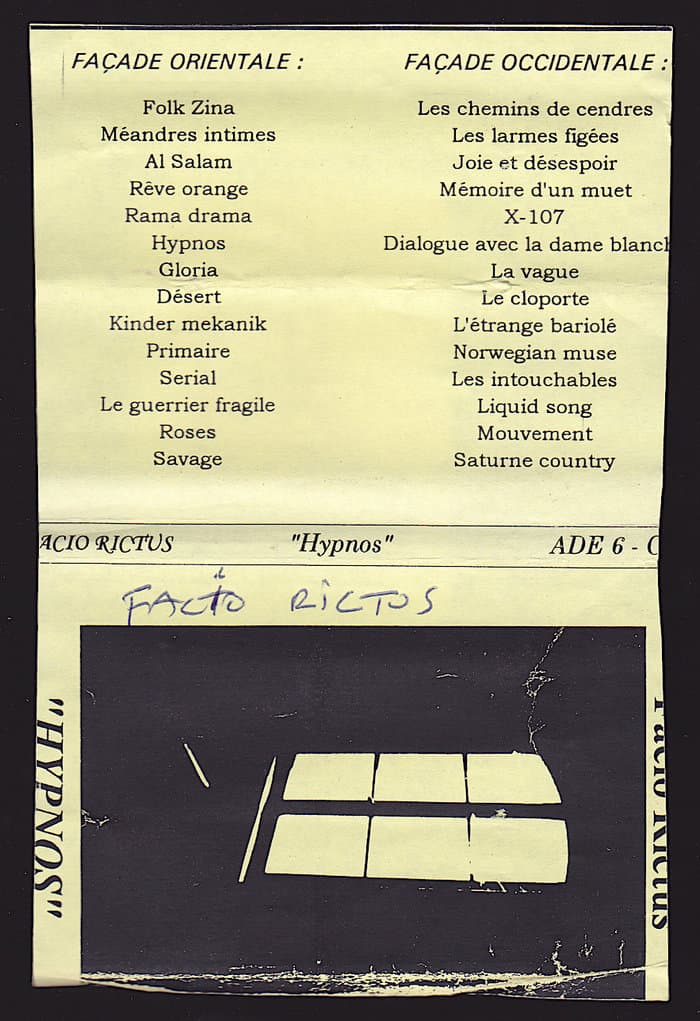 FAÇADE ORIENTALE :
Folk Zina
Méandres intimes
Al Salam
Rêve orange
Rama drama
Hypnos
Gloria
Désert
Kinder mekanik
Primaire
Serial
Le guerrier fragile
Roses
Savage
FAÇADE OCCIDENTALE :
Les chemins de cendres
Les larmes figées
Joie et désespoir
Mémoire d'un muet
X-107
Dialogue avec la dame blanch
La vague
Le cloporte
L'étrange bariolé
Norwegian muse
Les intouchables
Liquid song
Mouvement
Saturne country
ACIO RICTUS "Hypnos" ADE 6 - C
FACIO RICTUS
"HYPNOS"
Facio Rictus